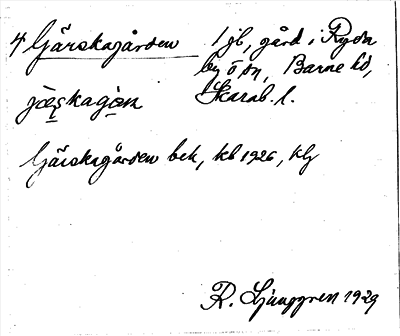 4 Gärskagården 1 jb, gård i Ryda
by o sn, Barne hd,
Skarab. l.
jæskagɑn
Gärskagården bek, kb 1926, klg
R. Ljunggren 1929